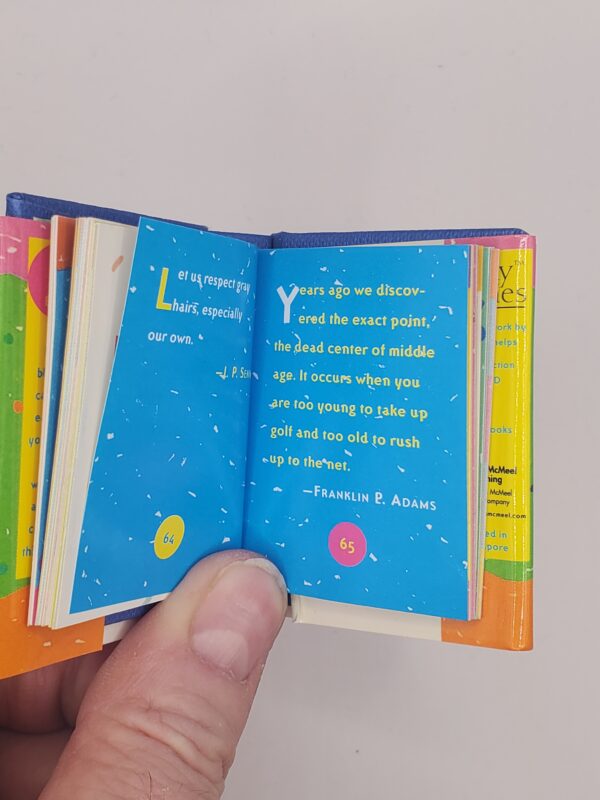 Let us respect gray
hairs, especially
our own.
—J. P. Senn
64
Years ago we discov-
ered the exact point,
the dead center of middle
age. It occurs when you
are too young to take up
golf and too old to rush
up to the net.
—Franklin P. Adams
65
work by
helps
McMeel
McMeel
company